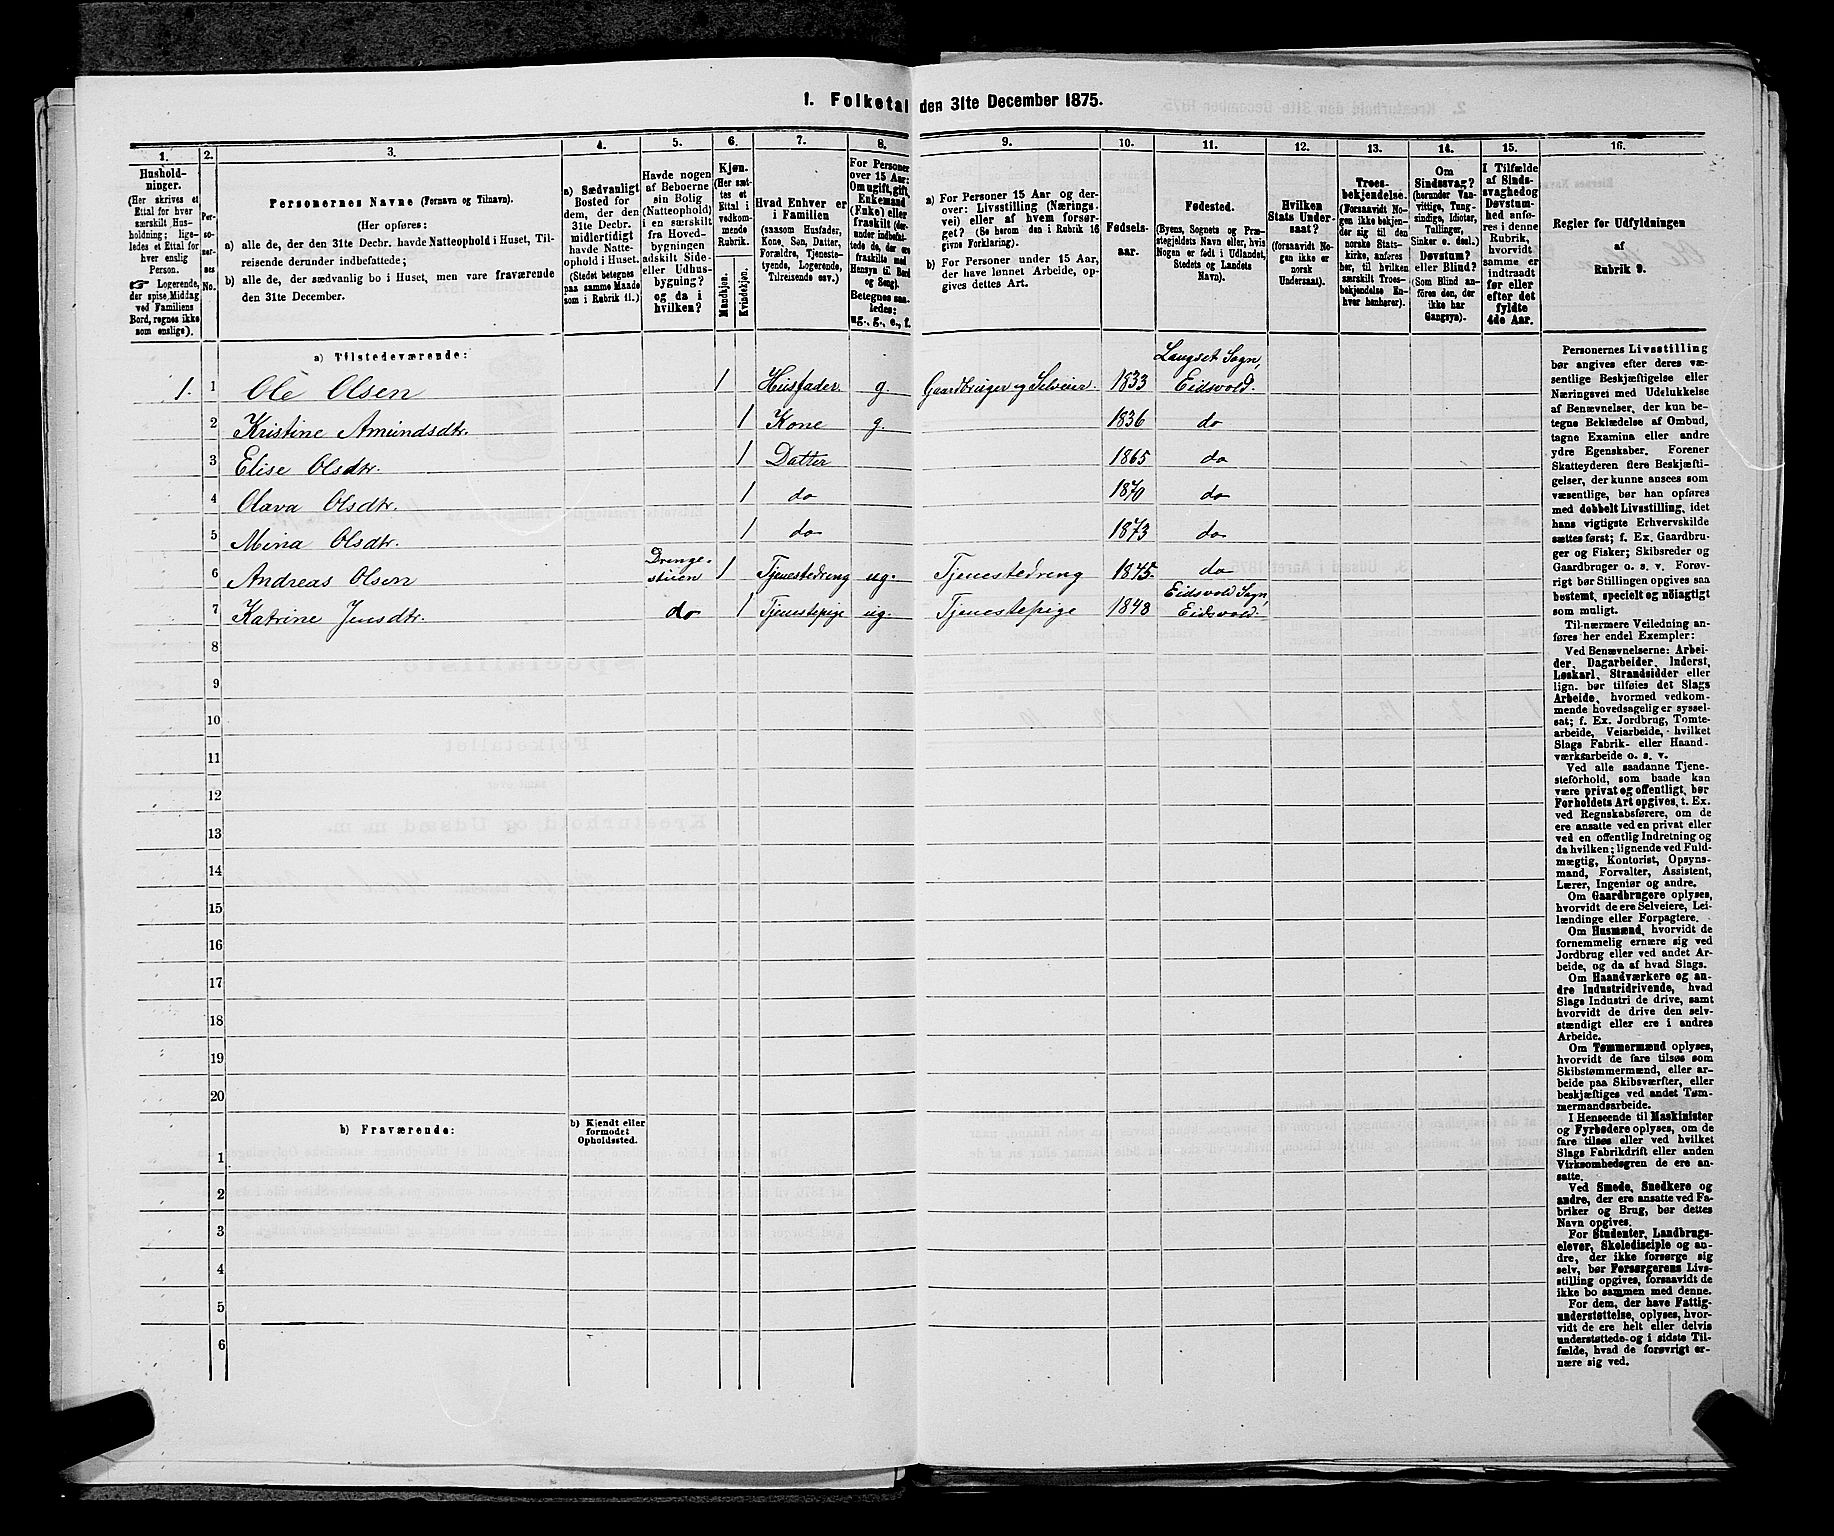 1. Folketal den 31te December 1875.
1.
Hushold-
ninger.
(Her skrives et
Ettal for hver
særskilt Hus-
holdning; lige-
ledes et Ettal for
hver enslig
Person.
☞ Logerende,
der spise Middag
ved Familiens
Bord, regnes ikke
som enslige).
2.
Per-
so-
ner-
nes
No.
3.
Personernes Navne (Fornavn og Tilnavn).
(Her opføres:
a) alle de, der den 31te Decbr. havde Natteophold i Huset, Til-
reisende derunder indbefattede;
b) alle de, der sædvanlig bo i Huset, men vare fraværende
den 31te December.
4.
a) Sædvanligt
Bosted for
dem, der den
31te Decbr.
midlertidigt
havde Natte-
ophold i Huset.
(Stedet betegnes
paa samme Maade
som i Rubrik 11.)
5.
Havde nogen
af Beboerne
sin Bolig
(Natteophold)
i en særskilt
fra Hoved-
bygningen
adskilt Side-
eller Udhus-
bygning?
og da i
hvilken?
6.
Kjøn.
(Her sæt-
tes et
Ettal i
vedkom-
mende
Rubrik.
Mandkjøn.
Kvindekjøn.
7.
Hvad Enhver er
i Familien
(saasom Husfader,
Kone, Søn, Datter,
Forældre, Tjeneste-
tyende, Logerende,
Tilreisende osv.)
8.
For Personer
over 15 Aar:
Om ugift, gift,
Enkemand
(Enke) eller
fraskilt (der-
under indbefat-
tede de, der ere
fraskilte med
Hensyn til Bord
og Seng).
Betegnes saa-
ledes:
ug., g., e., f.
9.
a) For Personer 15 Aar og der-
over: Livsstilling (Nærings-
vei) eller af hvem forsør-
get? (Se herom den i Rubrik 16
givne Forklaring).
b) For Personer under 15 Aar,
der have lønnet Arbeide, op-
gives dettes Art.
10.
Fødsels-
aar.
11.
Fødested.
(Byens, Sognets og Præ-
stegjeldets Navn eller, hvis
Nogen er født i Udlandet,
Stedets og Landets
Navn).
12.
Hvilken
Stats Under-
saat?
(forsaavidt No-
gen ikke er
norsk
Undersaat).
13.
Troes-
bekjendelse.
(Forsaavidt No-
gen ikke bekjen-
der sig til den
norske Stats-
kirke, anføres
her, til hvilken
særskilt Troes-
bekjendelse En-
hver henhører).
14.
Om
Sindssvag?
(herunder Van-
vittige, Tung-
sindige, Idioter,
Tullinger,
Sinker o. desl.)
Døvstum?
eller Blind?
(Som Blind an-
føres den, der
ikke har
Gangsyn).
15.
I Tilfælde
af Sinds-
svaghed og
Døvstum-
hed anfø-
res i denne
Rubrik,
hvorvidt
samme er
indtraadt
før eller
efter det
fyldte
4de Aar.
16.
Regler for Udfyldningen
af
Rubrik 9.
a) Tilstedeværende:
1. 1 Ole Olsen 1 Husfader g Gaardbruger og Selveier. 1833 Langset Sogn, Eidsvold.
2 Kristine Amundsdtr. 1 Kone g. 1836 do
3 Elise Olsdtr. 1 Datter 1865 do
4 Olava Olsdtr. 1 do 1870 do
5 Mina Olsdtr. 1 do 1873 do
6 Andreas Olsen Drenge-stuen 1 Tjenestedreng ug. Tjenestedreng 1845. do
7 Katrine Jensdtr. do 1 Tjenestepige ug. Tjenestepige 1848 Eidsvold Sogn, Eidsvold.
8
9
10
11
12
13
14
15
16
17
18
19
20
b) Fraværende:
b) Kjendt eller
formodet
Opholdssted.
1
2
3
4
5
6
Personernes Livsstilling
bør angives efter deres væ-
sentlige Beskjæftigelse eller
Næringsvei med Udelukkelse
af Benævnelser, der kun be-
tegne Beklædelse af Ombud,
tagne Examina eller andre
ydre Egenskaber. Forener
Skatteyderen flere Beskjæfti-
gelser, der kunne ansees som
væsentlige, bør han opføres
med dobbelt Livsstilling, idet
hans vigtigste Erhvervskilde
sættes først; f. Ex. Gaardbru-
ger og Fisker; Skibsreder og
Gaardbruger o. s. v. Forøv-
rigt bør Stillingen opgives saa
bestemt, specielt og nøiagtigt
som muligt.
Til nærmere Veiledning an-
føres her endel Exempler:
Ved Benævnelserne: Arbei-
der, Dagarbeider, Inderst,
Løskarl, Strandsidder eller
lign. bør tilføies det Slags
Arbeide, hvormed vedkom-
mende hovedsagelig er syssel-
sat; f. Ex. Jordbrug, Tomte-
arbeide, Veiarbeide, hvilket
Slags Fabrik- eller Haand-
værksarbeide o. s. v.
Ved alle saadanne Tjene-
steforhold, som baade kan
være privat og offentligt, bør
Forholdets Art opgives, t. Ex.
ved Regnskabsførere, om de
ere ansatte ved en privat eller
ved en offentlig Indretning og
da hvilken; lignende ved Fuld-
mægtig, Kontorist, Opsyns-
mand, Forvalter, Assistent,
Lærer, Ingeniør og andre.
Om Gaardbrugere oplyses,
hvorvidt de ere Selveiere, Lei-
lændinge eller Forpagtere.
Om Husmænd, hvorvidt de
fornemmelig ernære sig ved
Jordbrug eller ved andet Ar-
beide, og da af hvad Slags.
Om Haandværkere og an-
dre Industridrivende, hvad
Slags Industri de drive, samt
hvorvidt de drive den selv-
stændigt eller ere i andres
Arbeide.
Om Tømmermænd oplyses,
hvorvidt de fare tilsøs som
Skibstømmermænd, eller ar-
beide paa Skibsværfter, eller
beskjæftiges ved andet Tøm-
mermandsarbeide.
I Henseende til Maskinister
og Fyrbødere oplyses, om de
fare tilsøs eller ved hvilket
Slags Fabrikdrift eller anden
Virksomhedsgren de ere an-
satte.
Ved Smede, Snedkere og
andre, der ere ansatte ved Fa-
briker og Brug, bør dettes
Navn opgives.
For Studenter, Landbrugs-
elever, Skoledisciple og an-
dre, der ikke forsørge sig
selv, bør Forsørgerens Livs-
stilling opgives, forsaavidt de
ikke bo sammen med denne.
For dem, der have Fattig-
understøttelse, oplyses, hvor-
vidt de ere helt eller delvis
understøttede og i sidste Til-
fælde, hvad de forøvrigt er-
nære sig ved.